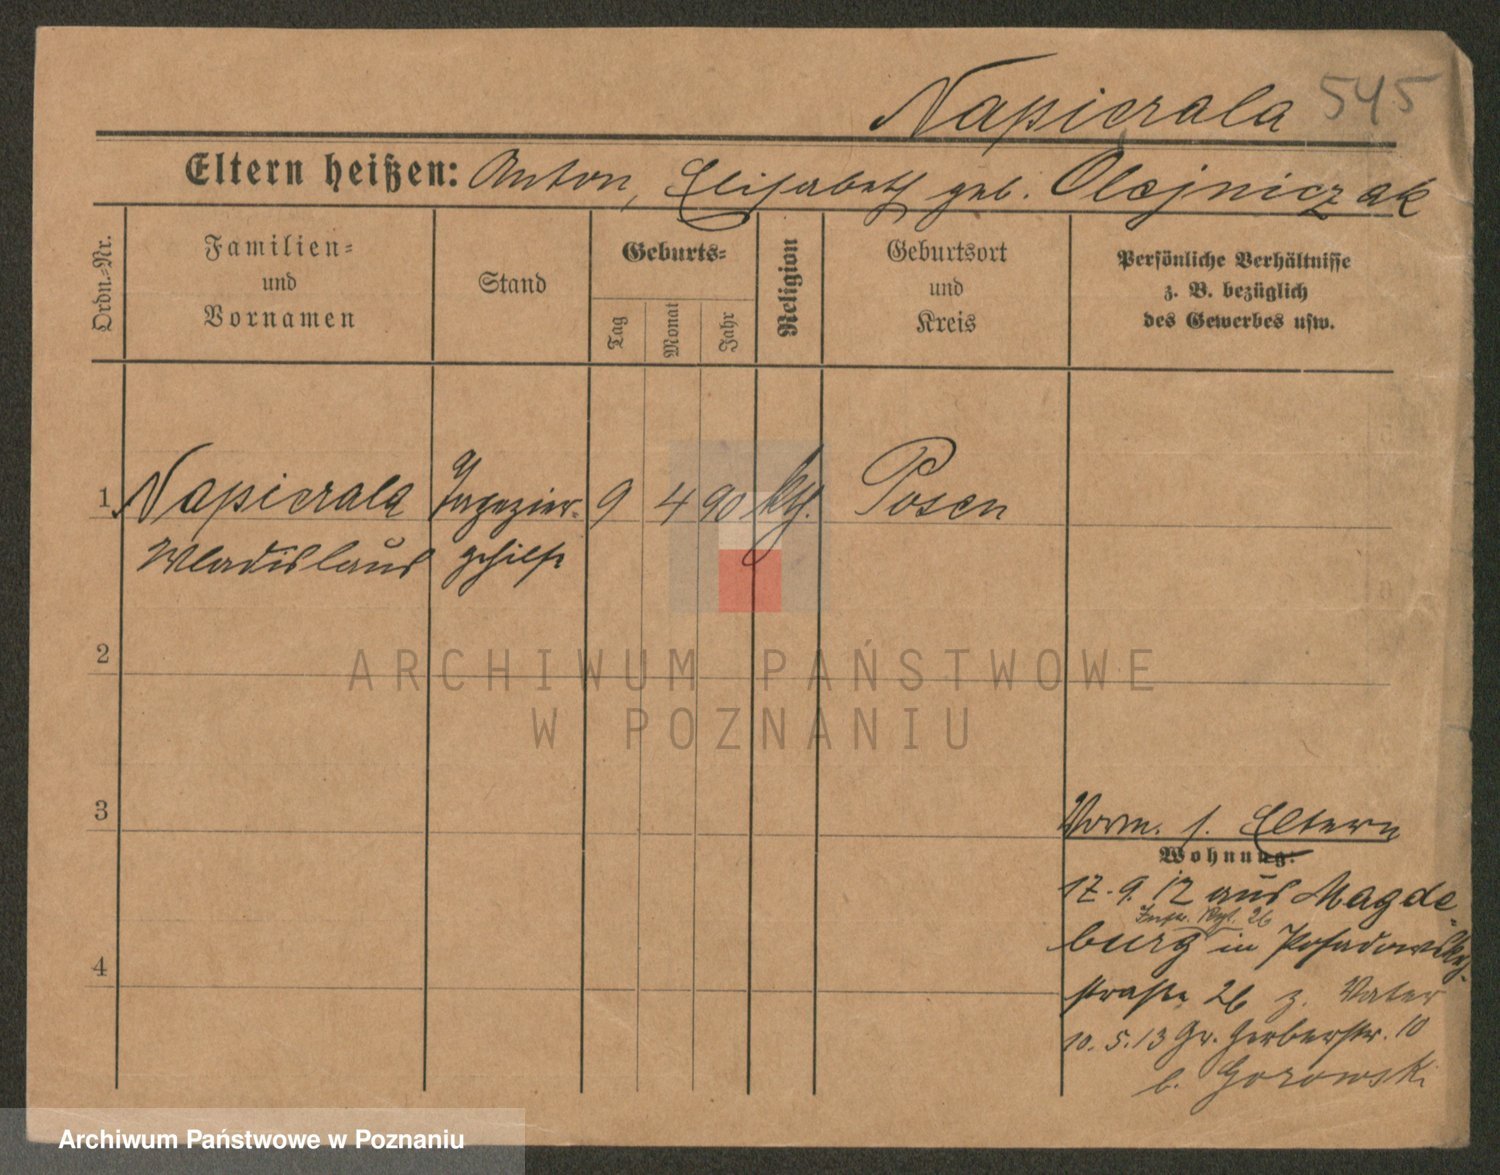 Napierala 545
Eltern heißen: Anton, Elisabeth geb. Olejniczak
Ordn.-Nr.
Familien-
und
Vornamen
Stand
Geburts-
Tag
Monat
Jahr
Religion
Geburtsort
und
Kreis
Persönliche Verhältnisse
z. B. bezüglich
des Gewerbes usw.
1 Napierala Tapezier- 9 4 90 kth. Posen
Wladislaus gehilfe
2
ARCHIWUM PAŃSTWOWE
W POZNANIU
3
Vorm. s. Eltern
Wohnung:
17.9.12 aus Magde-
Inf. Rgt. 26
burg in Posadowsky-
4
straße 26 z. Vater
10.5.13 Gr. Gerberstr. 10
b. Gorowski
Archiwum Państwowe w Poznaniu